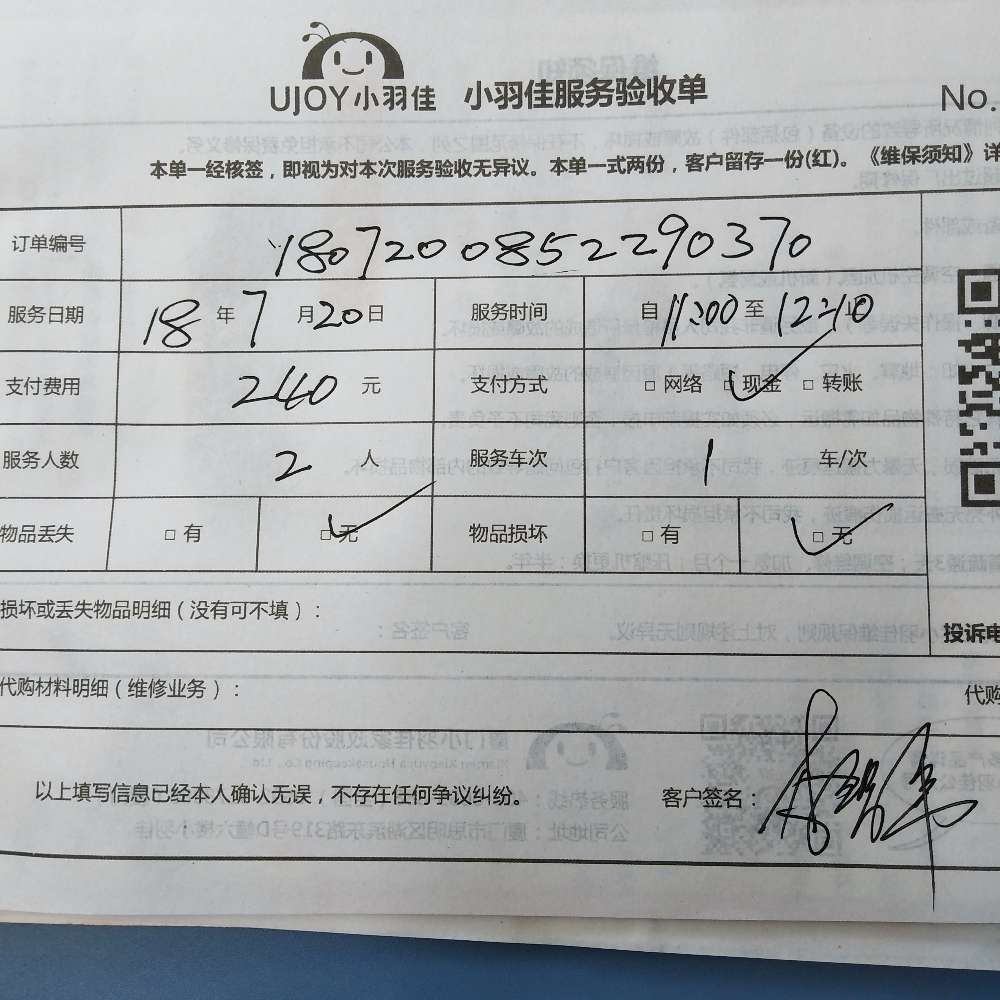 UJOY小羽佳 小羽佳服务验收单 No.
本单一经核签，即视为对本次服务验收无异议。本单一式两份，客户留存一份(红)。《维保须知》详
订单编号 180720085229037​0
服务日期 18年7月20日 服务时间 自11:00至12:10
支付费用 240元 支付方式 □网络 □现金 □转账
服务人数 2人 服务车次 1 车/次
物品丢失 □有 □无 物品损坏 □有 □无
损坏或丢失物品明细（没有可不填）：
投诉电
代购材料明细（维修业务）： 代购
以上填写信息已经本人确认无误，不存在任何争议纠纷。 客户签名：